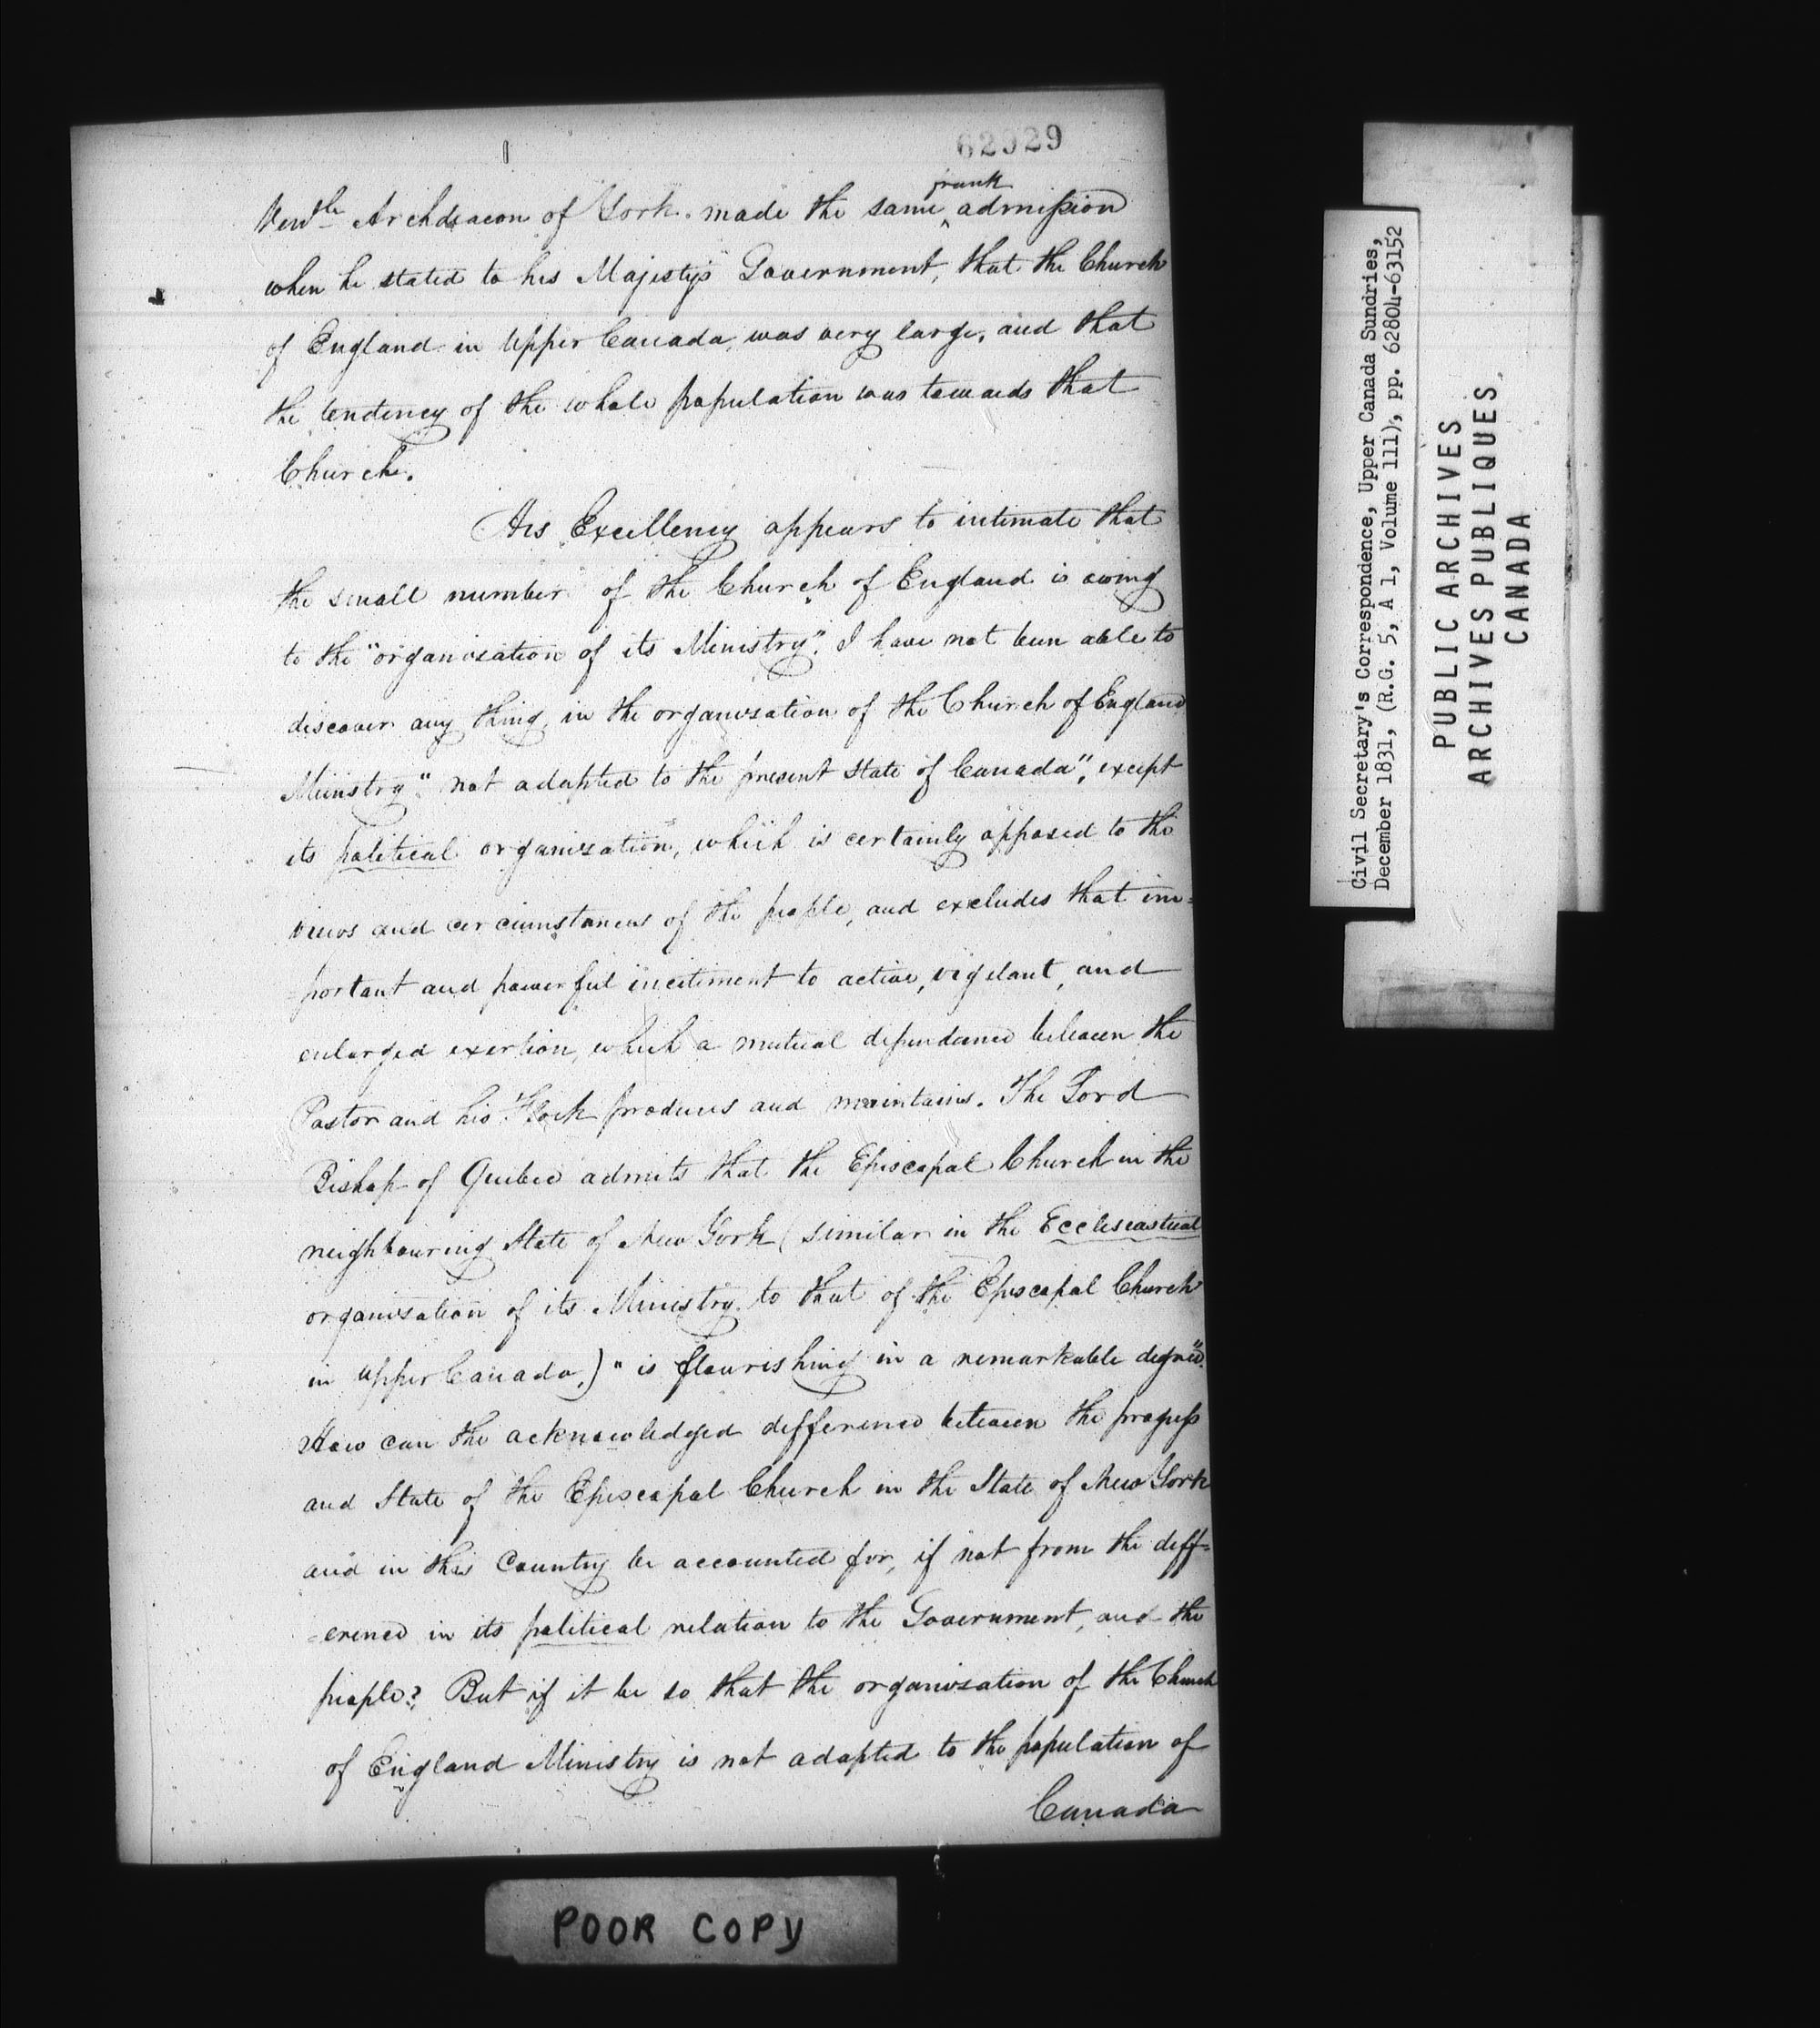 62929
Venble Archdeacon of York made the same frank admission
when he stated to his Majesty's Government, that the Church
of England in Upper Canada, was very large, and that
the tendency of the whole population was towards that
Church.
His Excellency appears to intimate that
the small number of the Church of England is owing
to the "organization of its Ministry". I have not been able to
discover any thing, in the organization of the Church of England
Ministry "not adapted to the present state of Canada", except
its political organization, which is certainly opposed to the
views and circumstances of the people, and excludes that im=
=portant and powerful incitement to active, vigilant, and
enlarged exertion, which a mutual dependence between the
Pastor and his Flock produces and maintains. The Lord
Bishop of Quebec admits that the Episcopal Church in the
neighbouring State of New York (similar in the Ecclesiastical
organization of its Ministry to that of the Episcopal Church
in Upper Canada,) "is flourishing in a remarkable degree".
How can the acknowledged difference between the progress
and State of the Episcopal Church in the State of New York
and in this Country be accounted for, if not from the diff=
=erence in its political relation to the Government, and the
people? But if it be so that the organization of the Church
of England Ministry is not adapted to the population of
Canada
Civil Secretary's Correspondence, Upper Canada Sundries,
December 1831, (R.G. 5, A 1, Volume 111), pp. 62804-63152
PUBLIC ARCHIVES
ARCHIVES PUBLIQUES
CANADA
POOR COPY